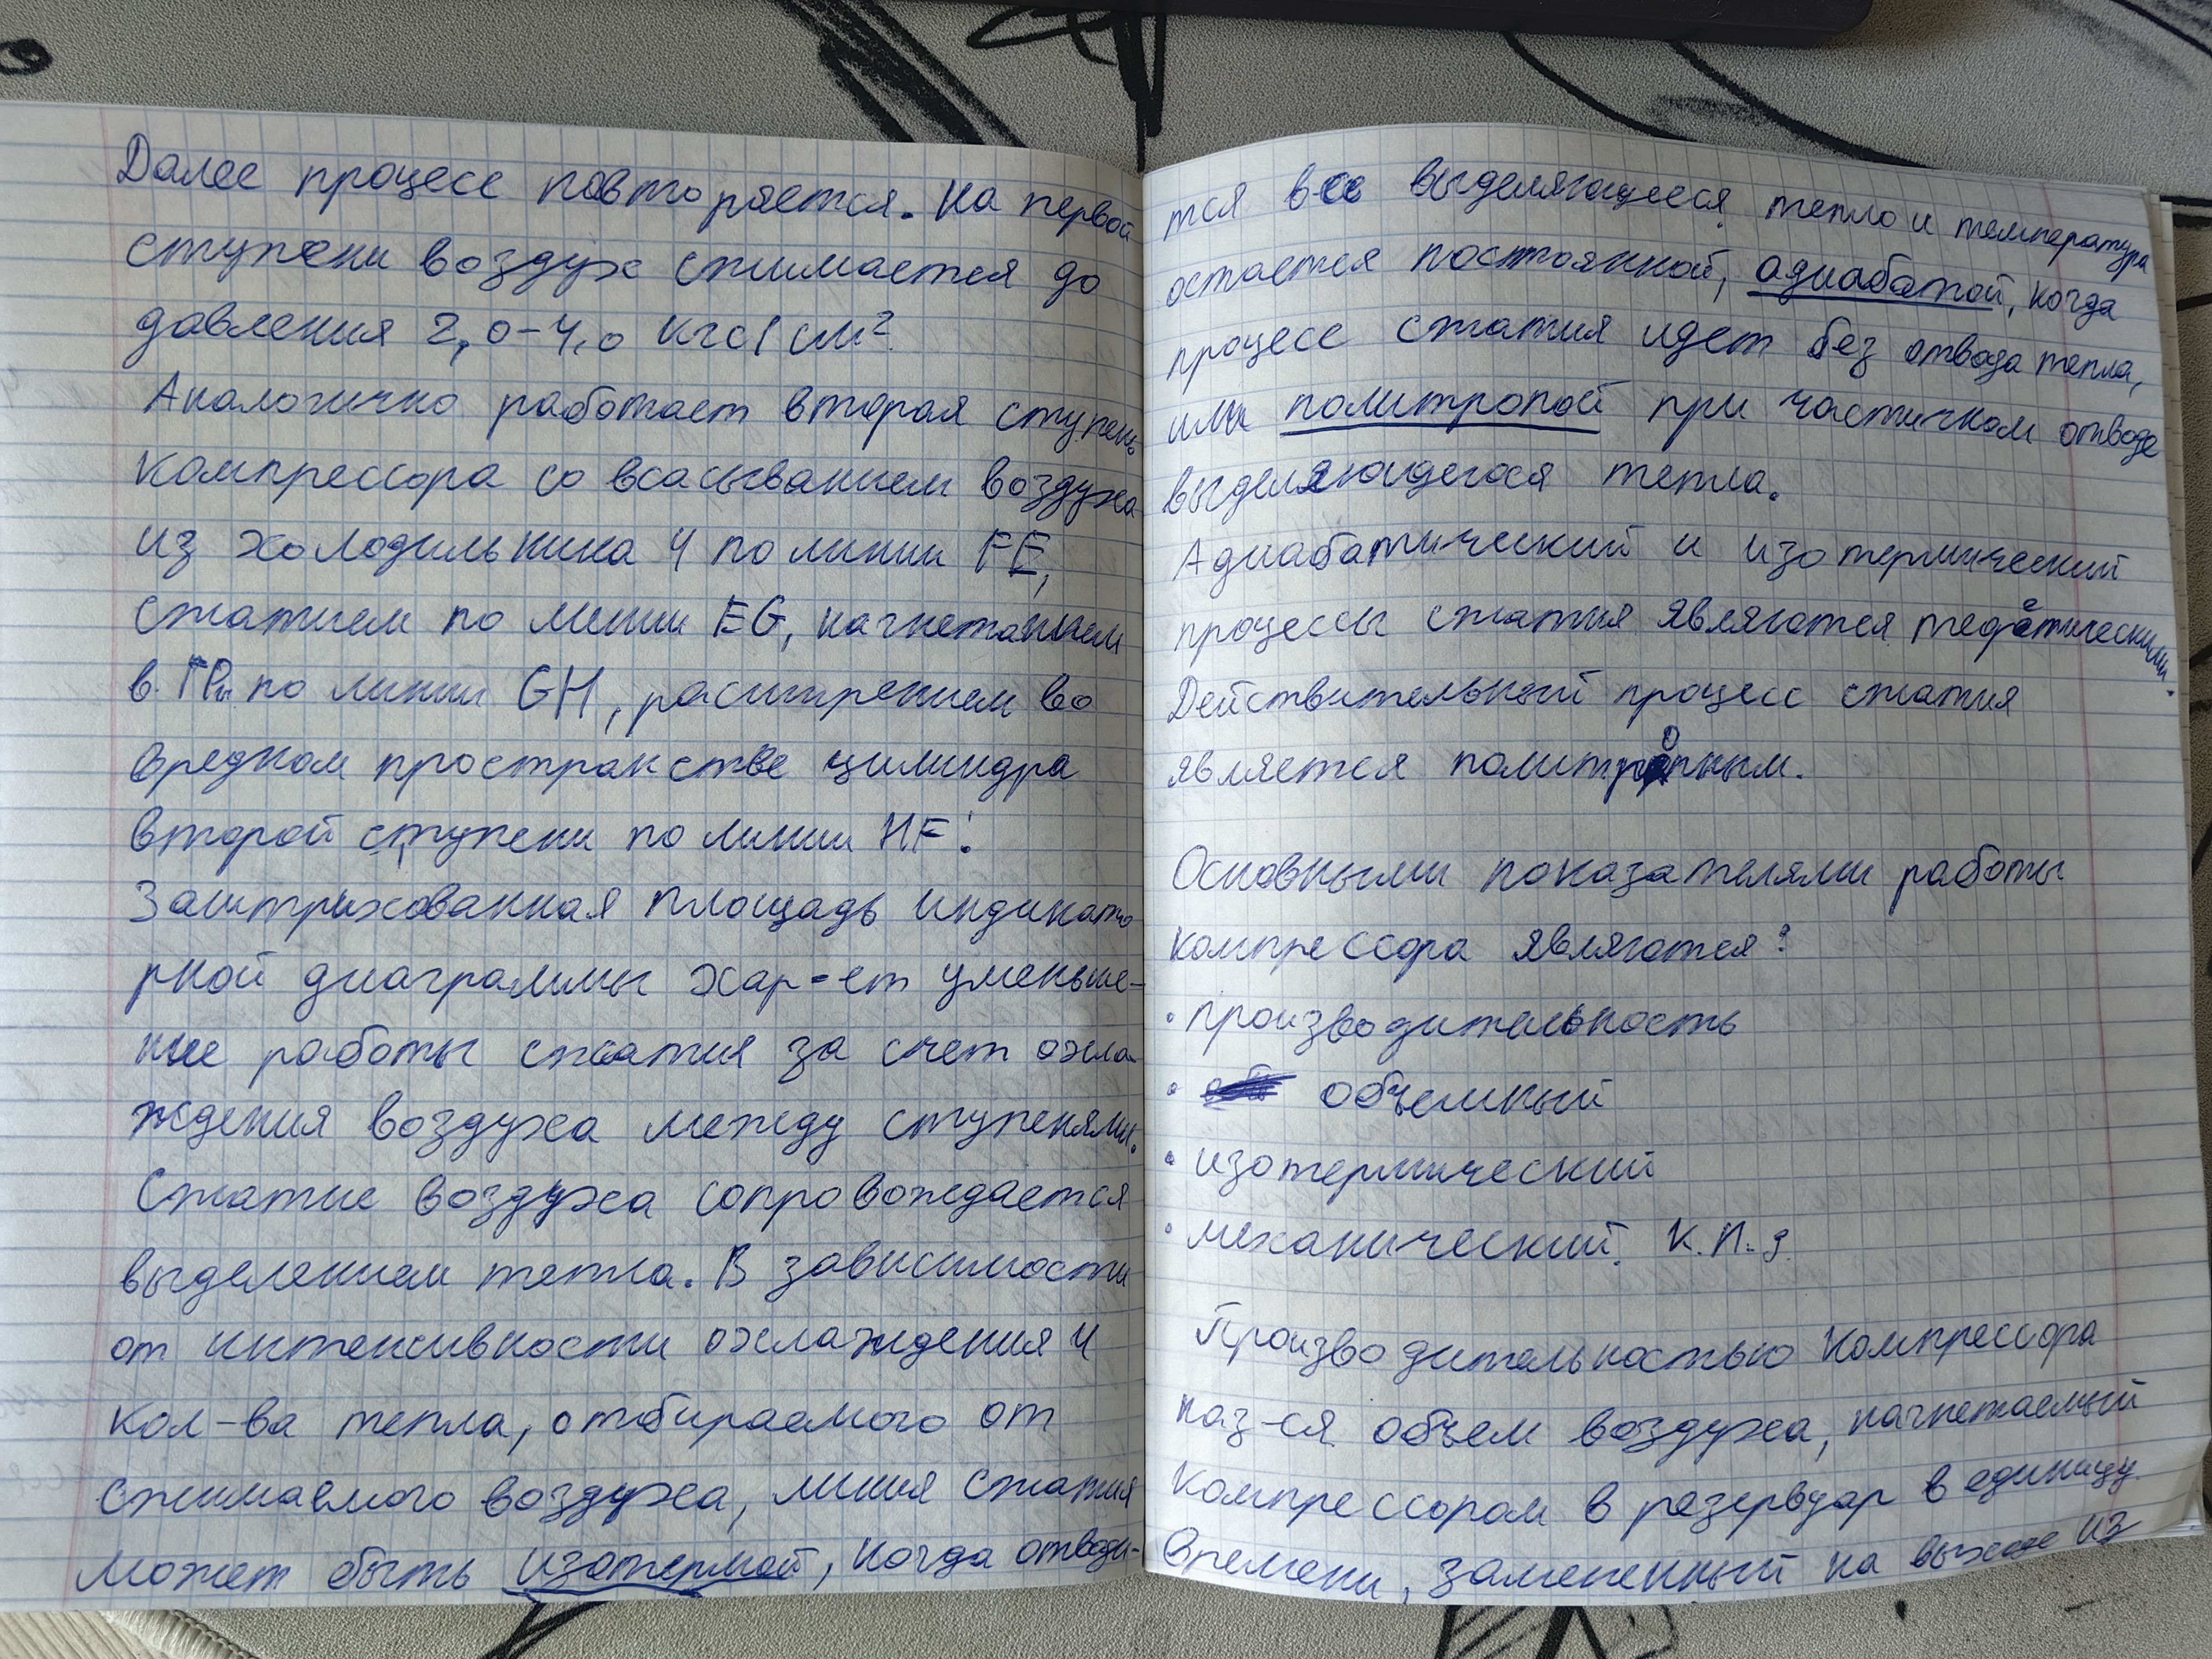 Далее процесс повторяется. На первой
ступени воздух сжимается до
давления 2,0-4,0 кгс/см².
Аналогично работает вторая ступень
компрессора со всасыванием воздуха
из холодильника 4 по линии FE,
сжатием по линии EG, нагнетанием
в ГРы по линии GH, расширением во
вредном пространстве цилиндра
второй ступени по линии HF.
Заштрихованная площадь индикато
рной диаграммы хар-ет уменьше-
ние работы сжатия за счет охла-
ждения воздуха между ступенями.
Сжатие воздуха сопровождается
выделением тепла. В зависимости
от интенсивности охлаждения и
кол-ва тепла, отбираемого от
сжимаемого воздуха, линия сжатия
может быть изотермой, когда отводи-
тся все выделяющееся тепло и температура
остается постоянной, адиабатой, когда
процесс сжатия идет без отвода тепла,
или политропой при частичном отводе
выделяющегося тепла.
Адиабатический и изотермический
процессы сжатия являются теоретическими.
Действительный процесс сжатия
является политропным.
Основными показателями работы
компрессора являются:
• производительность
• объемный
• изотермический
• механический. к.п.д.
Производительностью компрессора
наз-ся объем воздуха, нагнетаемый
компрессором в резервуар в единицу
времени, замененный на выходе из